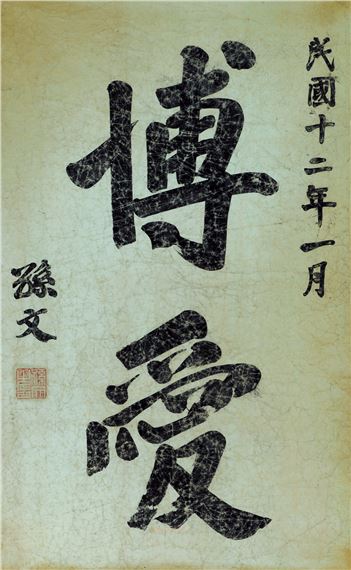 民國十二年一月
博愛
孫文